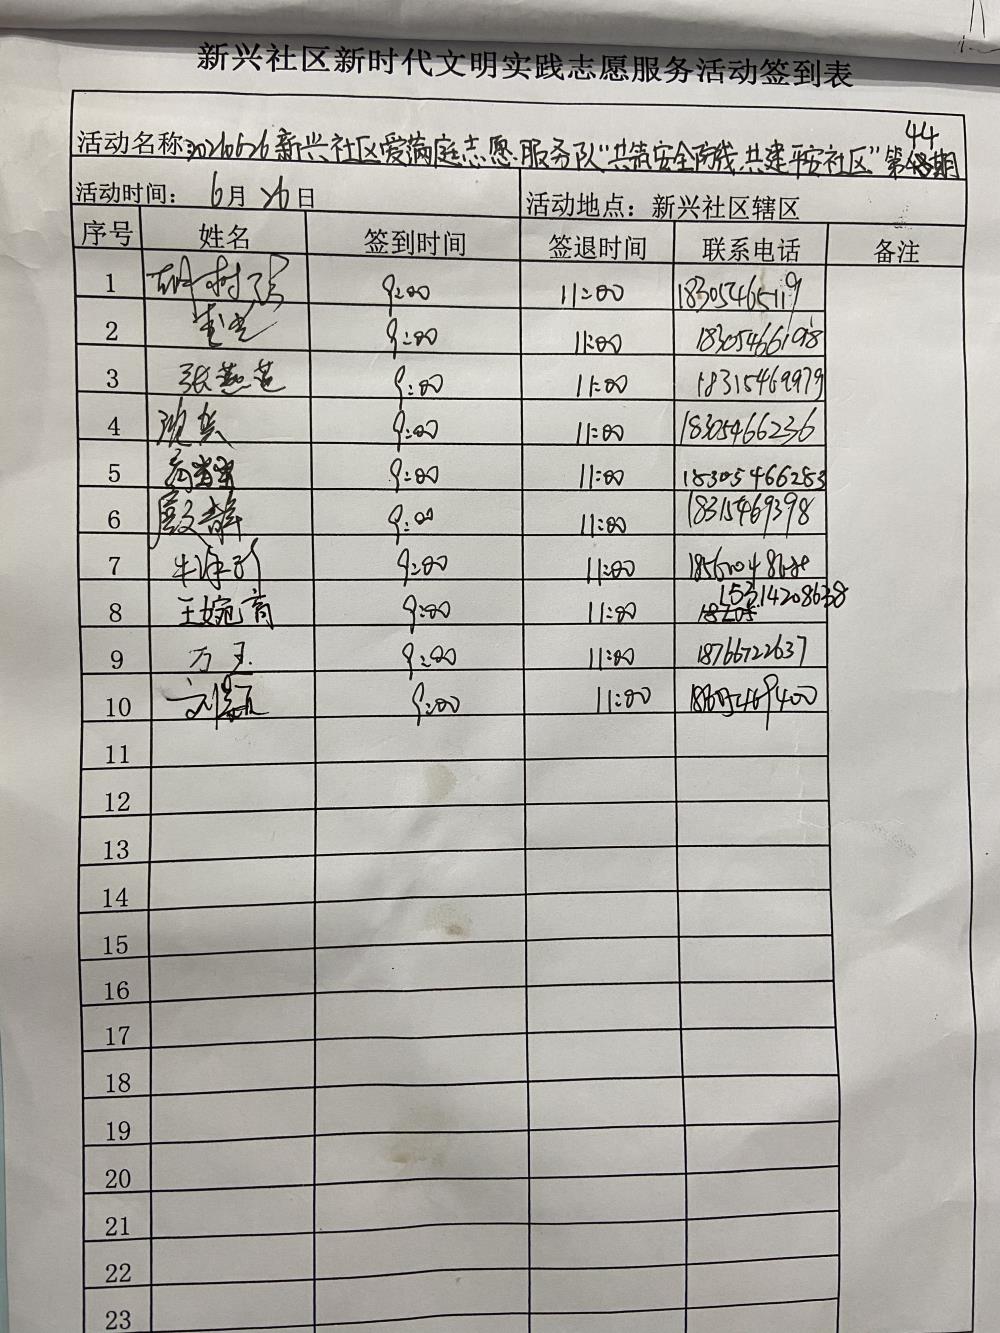 新兴社区新时代文明实践志愿服务活动签到表
44
活动名称：20260626新兴社区爱满庭志愿服务队“共筑安全防线 共建平安社区”第期
活动时间： 6月 26日 活动地点：新兴社区辖区
序号 姓名 签到时间 签退时间 联系电话 备注
1 9:00 11:00 18305465119
2 9:00 11:00 18305466198
3 张燕燕 9:00 11:00 18315469979
4 9:00 11:00 18305466236
5 9:00 11:00 18305466283
6 殷静 9:00 11:00 18315469398
7 9:00 11:00
15314208638
8 王婉育 9:00 11:00
9 万玉 9:00 11:00 18766722637
10 9:00 11:00
11
12
13
14
15
16
17
18
19
20
21
22
23